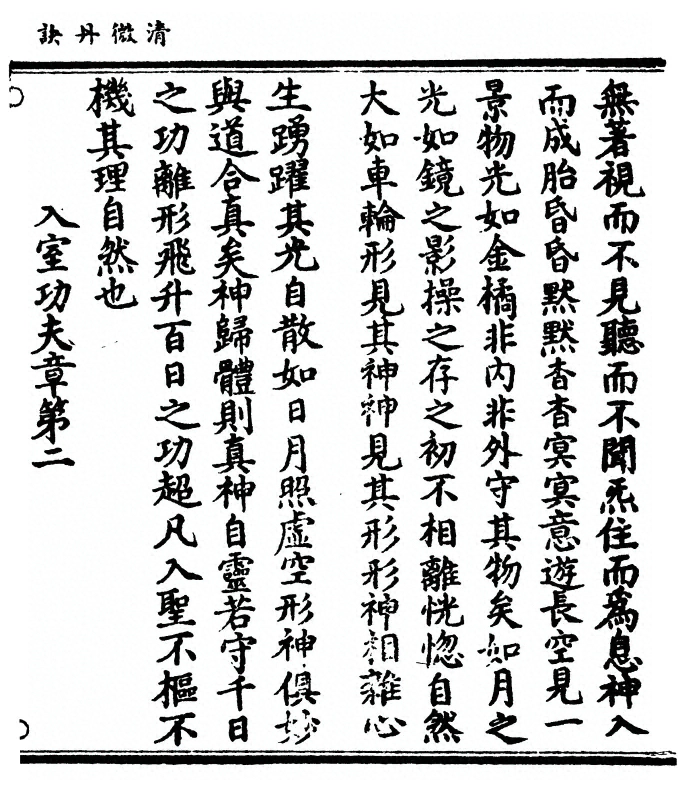 清微丹訣
無著視而不見聽而不聞炁住而為息神入
而成胎昏昏默默杳杳冥冥意遊長空見一
景物光如金橘非內非外守其物矣如月之
光如鏡之影操之存之初不相離恍惚自然
大如車輪形見其神神見其形形神相離心
生踴躍其光自散如日月照虛空形神俱妙
與道合真矣神歸體則真神自靈若守千日
之功離形飛升百日之功超凡入聖不樞不
機其理自然也
入室功夫章第二